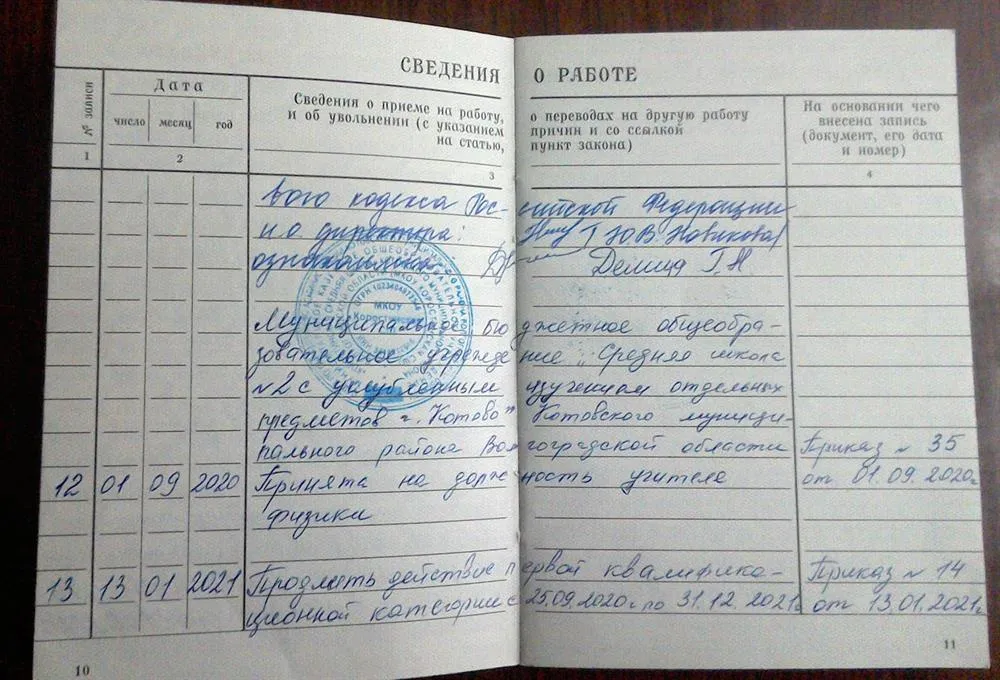 СВЕДЕНИЯ О РАБОТЕ
№ записи
Дата
число месяц год
Сведения о приеме на работу, о переводах на другую работу
и об увольнении (с указанием причин и со ссылкой
на статью, пункт закона)
На основании чего
внесена запись
(документ, его дата
и номер)
1 2 3 4
вого кодекса Рос- сийской Федерации
И о директора: Ю.В. Новикова
ознакомлена Демида Г.Н
МКОУ
Муниципальное бю джетное общеобра-
зовательное учрежде ние „Средняя школа
№2 с углубленным изучением отдельных
предметов" г. Котово Котовского муници-
пального района Вол гоградской области
Приказ № 35
12 01 09 2020 Принята на долж ность учителя от 01.09.2020г
физики
13 13 01 2021 Продлить действие первой квалифика- Приказ № 14
ционной категории с 25.09.2020г по 31.12.2021г от 13.01.2021г
10
11